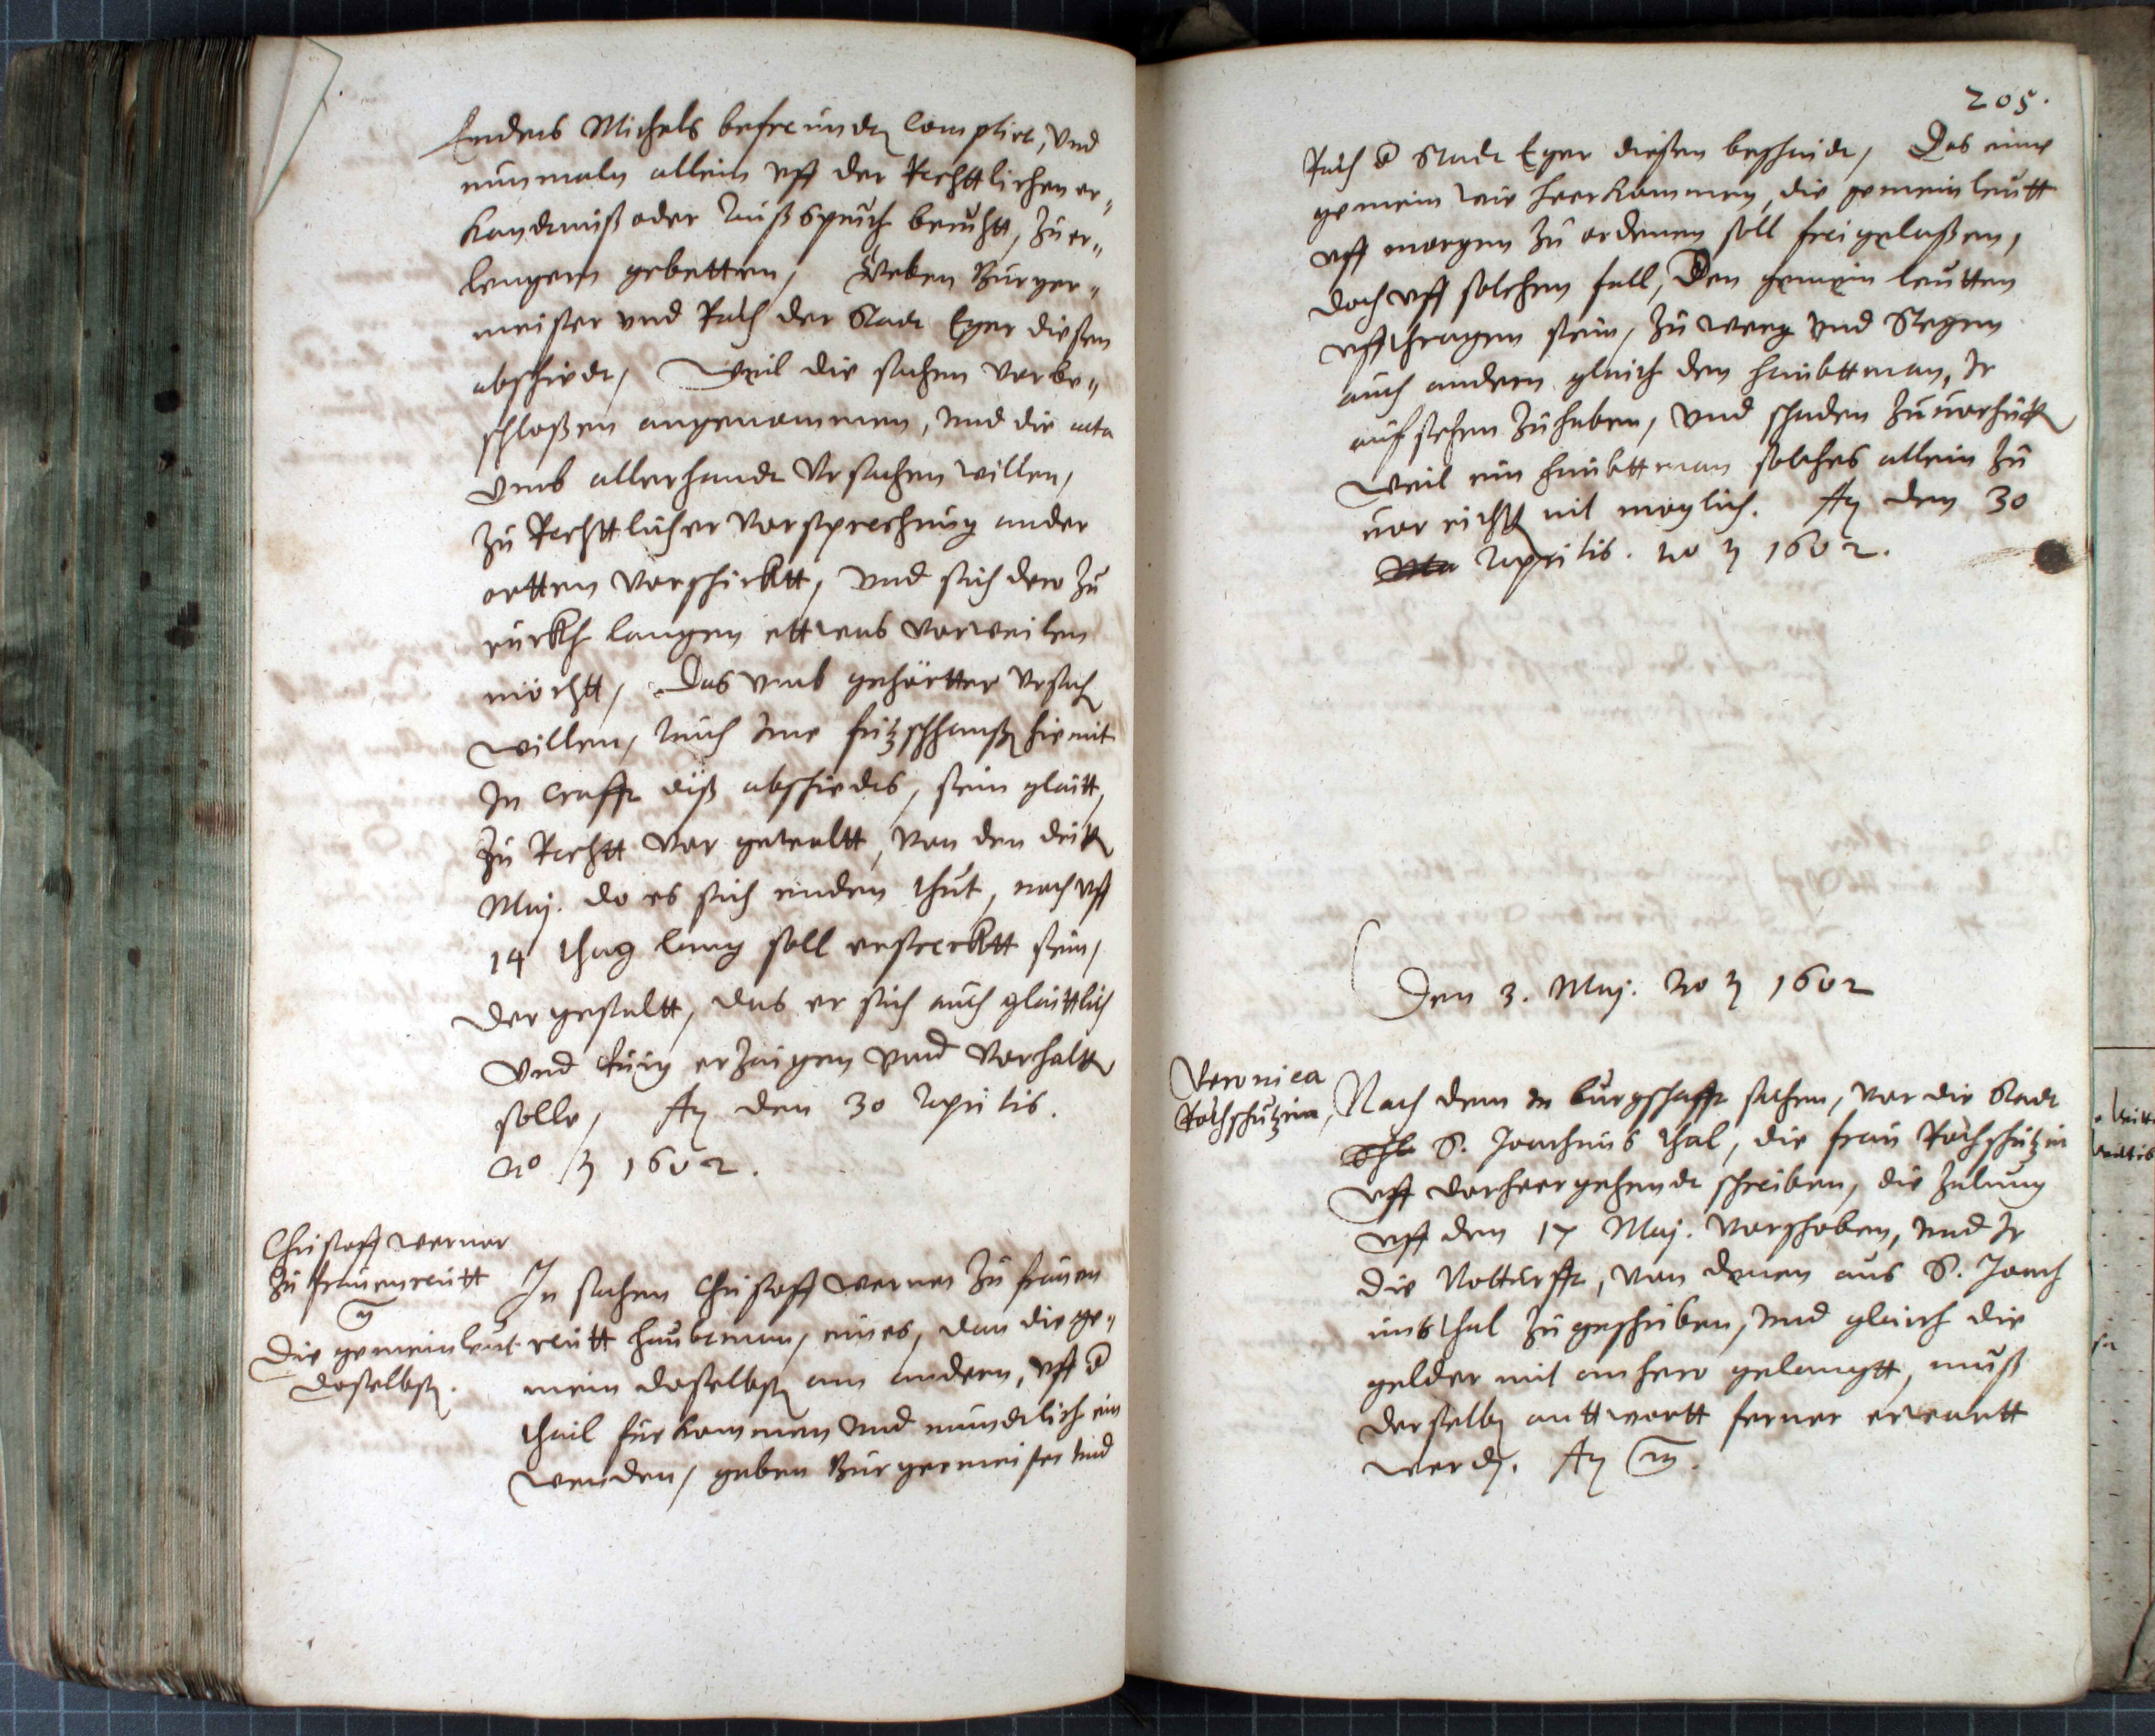 Enders Michels befreundtn compliret, und
nunmaln allein vff der Rechttlichen er-
kandtniß oder Außspruch beruhtt, zu er-
lengern gebetten, Geben Burger-
meister vnd Rath der Stadt Eger diesen
abschiedt, Weil die sachen vor be-
schloßen angenommen, vnd die acta
Vmb allerhandt Vrsachen willen,
zu Rechttlicher Vorsprechung ander
ortten Vorschicktt, vnd sich dero zu
rückh langen ettwas vorweilen
möchtt, Das vmb gehörtter vrsach
willen, Auch Ime fritzschhanßn hiemit
In Crafft diß abschiedts, sein glaitt,
zu Rechtt vor gewaltt, von den dritten
Maj. do es sich enden thut, noch vff
14 thag lang soll erstrecktt sein,
der gestaltt, das er sich auch glaittlich
Vnd ruig erzaigen vnd vorhaltten
solle, Act. den 30 Aprilis.
Ao 1602.
Christoff Werner
zu frauenreutt
Die gemeinleut
doselbst.
In sachen Christoff Werner zu frauen
reutt haubtman, eines, dan die ge-
mein doselbst am andern, vff
thail fürkommen vnd mündtlich ein
wenden, geben Burgermeister vnd
205.
Rath d Stadt Eger diesen beschaidt, Das eine
gemein wie heerkommen, die gemein leutt
vff morgen zu ordenen soll frei gelaßen,
doch vff solchen fall, Den gemein leutten
vffthragen sein, zu weeg vnd Stegen
auch andern gleich den haubttman, Ir
aufsehen zuhaben, vnd schaden zuuorhüten
Weil ein haubttman solches allein zu
uorrichten nit moglich. Act. den 30
Aprilis. Ao 1602.
Den 3. Maj. Ao 1602
Veronica
Rothschützin
Nach dem In burgschafft sachen, vor die Stadt
S. Joachims thal, die frau Rothschützin
Vff vorheergehendt schreiben, die zalung
vff den 17 Maj. vorschoben, vnd Ir
die Notturfft, von denen aus S. Joach
imsthal zugeschriben, vnd gleich die
gelder nit anhero gelangtt, muß
derselbn anttwortt ferner erwartt
werdn. Act.